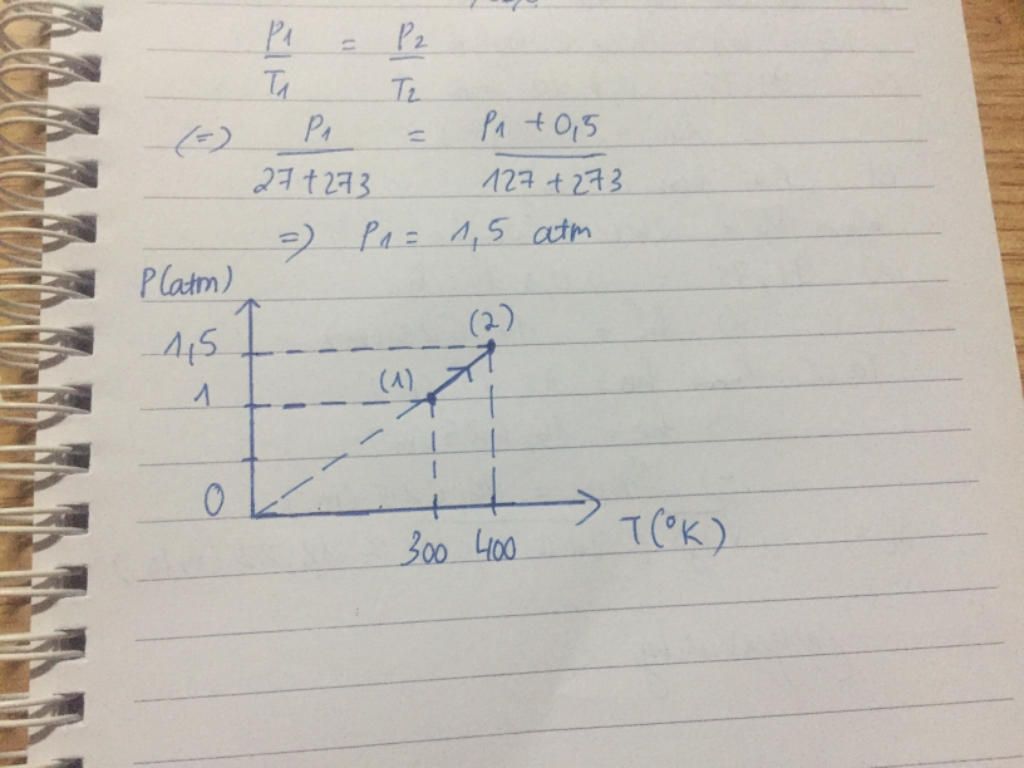 P1 / T1 = P2 / T2
(=) P1 / 27+273 = P1 + 0,5 / 127+273
=) P1 = 1,5 atm
P(atm)
(2)
1,5
(1)
1
0
300 400 T(°K)